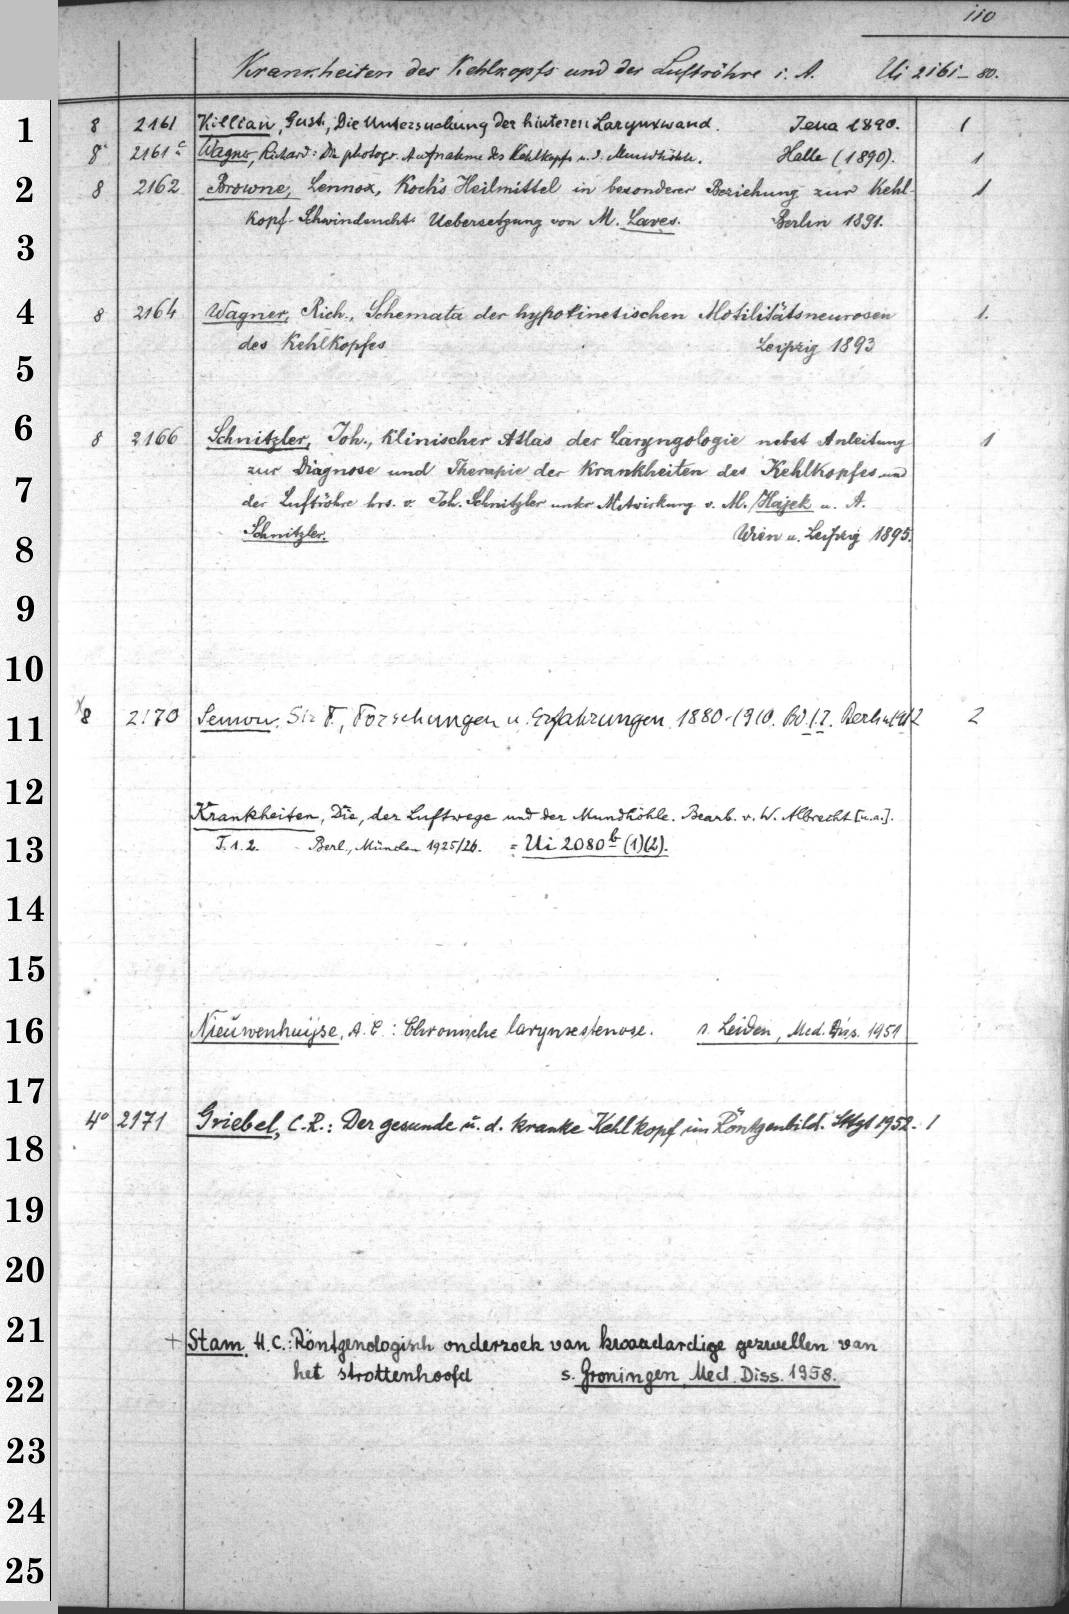 110
Krankheiten des Kehlkopfs und der Luftröhre i. A. Ui 2161-80.
1 8 2161 Killian, Gust., Die Untersuchung der hinteren Larynxwand. Jena 1890. 1
8° 2161a Wagner, Richard: Die photogr. Aufnahme des Kehlkopfs u. d. Mundhöhle. Halle (1890). 1
2 8 2162 Browne, Lennox, Koch's Heilmittel in besonderer Beziehung zur Kehl-
kopf-Schwindsucht. Uebersetzung von M. Laves. Berlin 1891. 1
3
4 8 2164 Wagner, Rich., Schemata der hypokinetischen Motilitätsneurosen 1.
des Kehlkopfes Leipzig 1893
5
6 8 2166 Schnitzler, Joh., Klinischer Atlas der Laryngologie nebst Anleitung 1
zur Diagnose und Therapie der Krankheiten des Kehlkopfes und
7 der Luftröhre hrs. v. Joh. Schnitzler unter Mitwirkung v. M. Hajek u. A.
8 Schnitzler. Wien u. Leipzig 1895.
9
10
11 x8 2170 Semon, Sir F., Forschungen u. Erfahrungen 1880-1910. Bd 1.2. Berlin 1912 2
12
Krankheiten, Die, der Luftwege und der Mundhöhle. Bearb. v. W. Albrecht [u.a.].
13 T. 1. 2. Berl., München 1925/26. = Ui 2080b (1)(2).
14
15
16 Nieuwenhuijse, A. C: Chronische larynxstenose. s. Leiden, Med. Diss. 1951
17
4° 2171 Griebel, C.R.: Der gesunde u. d. kranke Kehlkopf im Röntgenbild. Sttgt 1952. 1
18
19
20
21 + Stam, H.C.: Röntgenologisch onderzoek van kwaadardige gezwellen van
22 het strottenhoofd s. Groningen, Med. Diss. 1958.
23
24
25